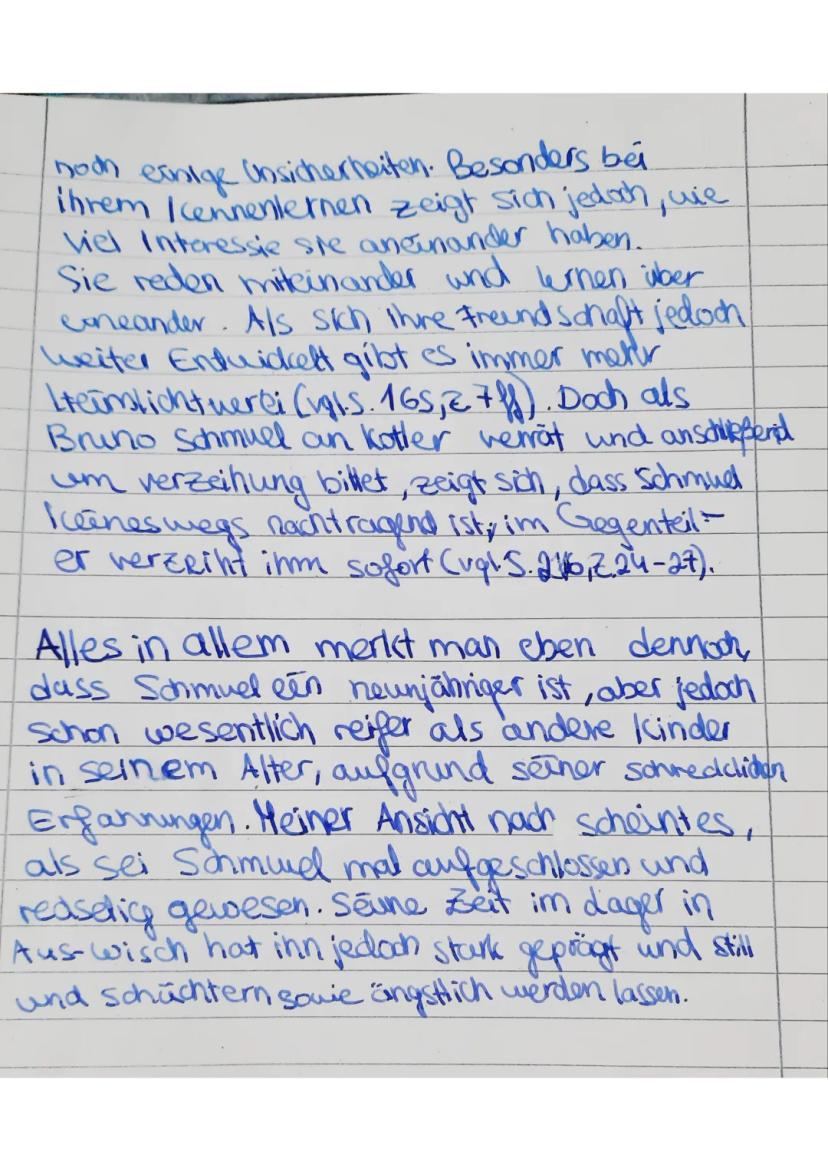 noch einige Unsicherheiten. Besonders bei
ihrem Kennenlernen zeigt sich jedoch, wie
viel Interessie sie aneinander haben.
Sie reden miteinander und lernen über
eineander. Als sich ihre Freundschaft jedoch
weiter Entwickelt gibt es immer mehr
Heimlichtuerei (vgl. S. 165, Z 7 ff). Doch als
Bruno Schmuel an Kotler verrät und anschließend
um verzeihung bittet, zeigt sich, dass Schmuel
keineswegs nachtragend ist, im Gegenteil -
er verzeiht ihm sofort (vgl. S. 216, Z. 24-27).
Alles in allem merkt man eben dennoch,
dass Schmuel ein neunjähriger ist, aber jedoch
schon wesentlich reifer als andere Kinder
in seinem Alter, aufgrund seiner schrecklichen
Erfahrungen. Meiner Ansicht nach scheint es,
als sei Schmuel mal aufgeschlossen und
redselig gewesen. Seine Zeit im Lager in
Aus-Wisch hat ihn jedoch stark geprägt und still
und schüchtern sowie ängstlich werden lassen.